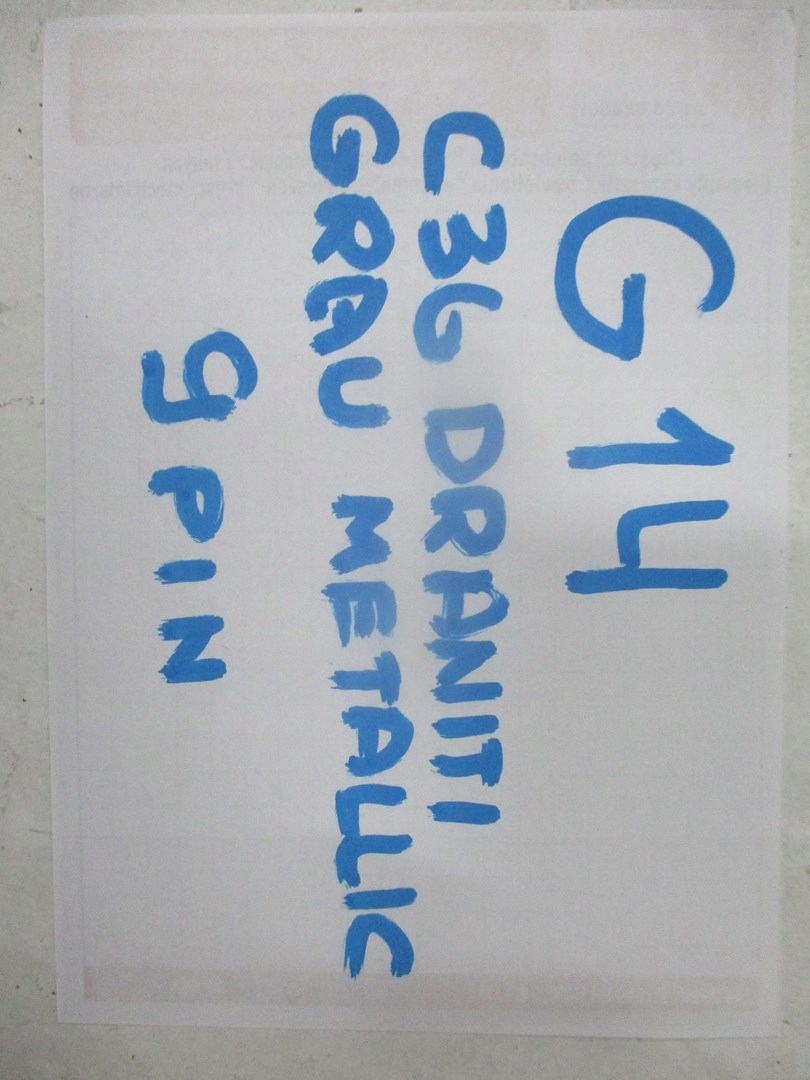 G 14
C3G DRANITI
GRAU METALLIC
9 PIN